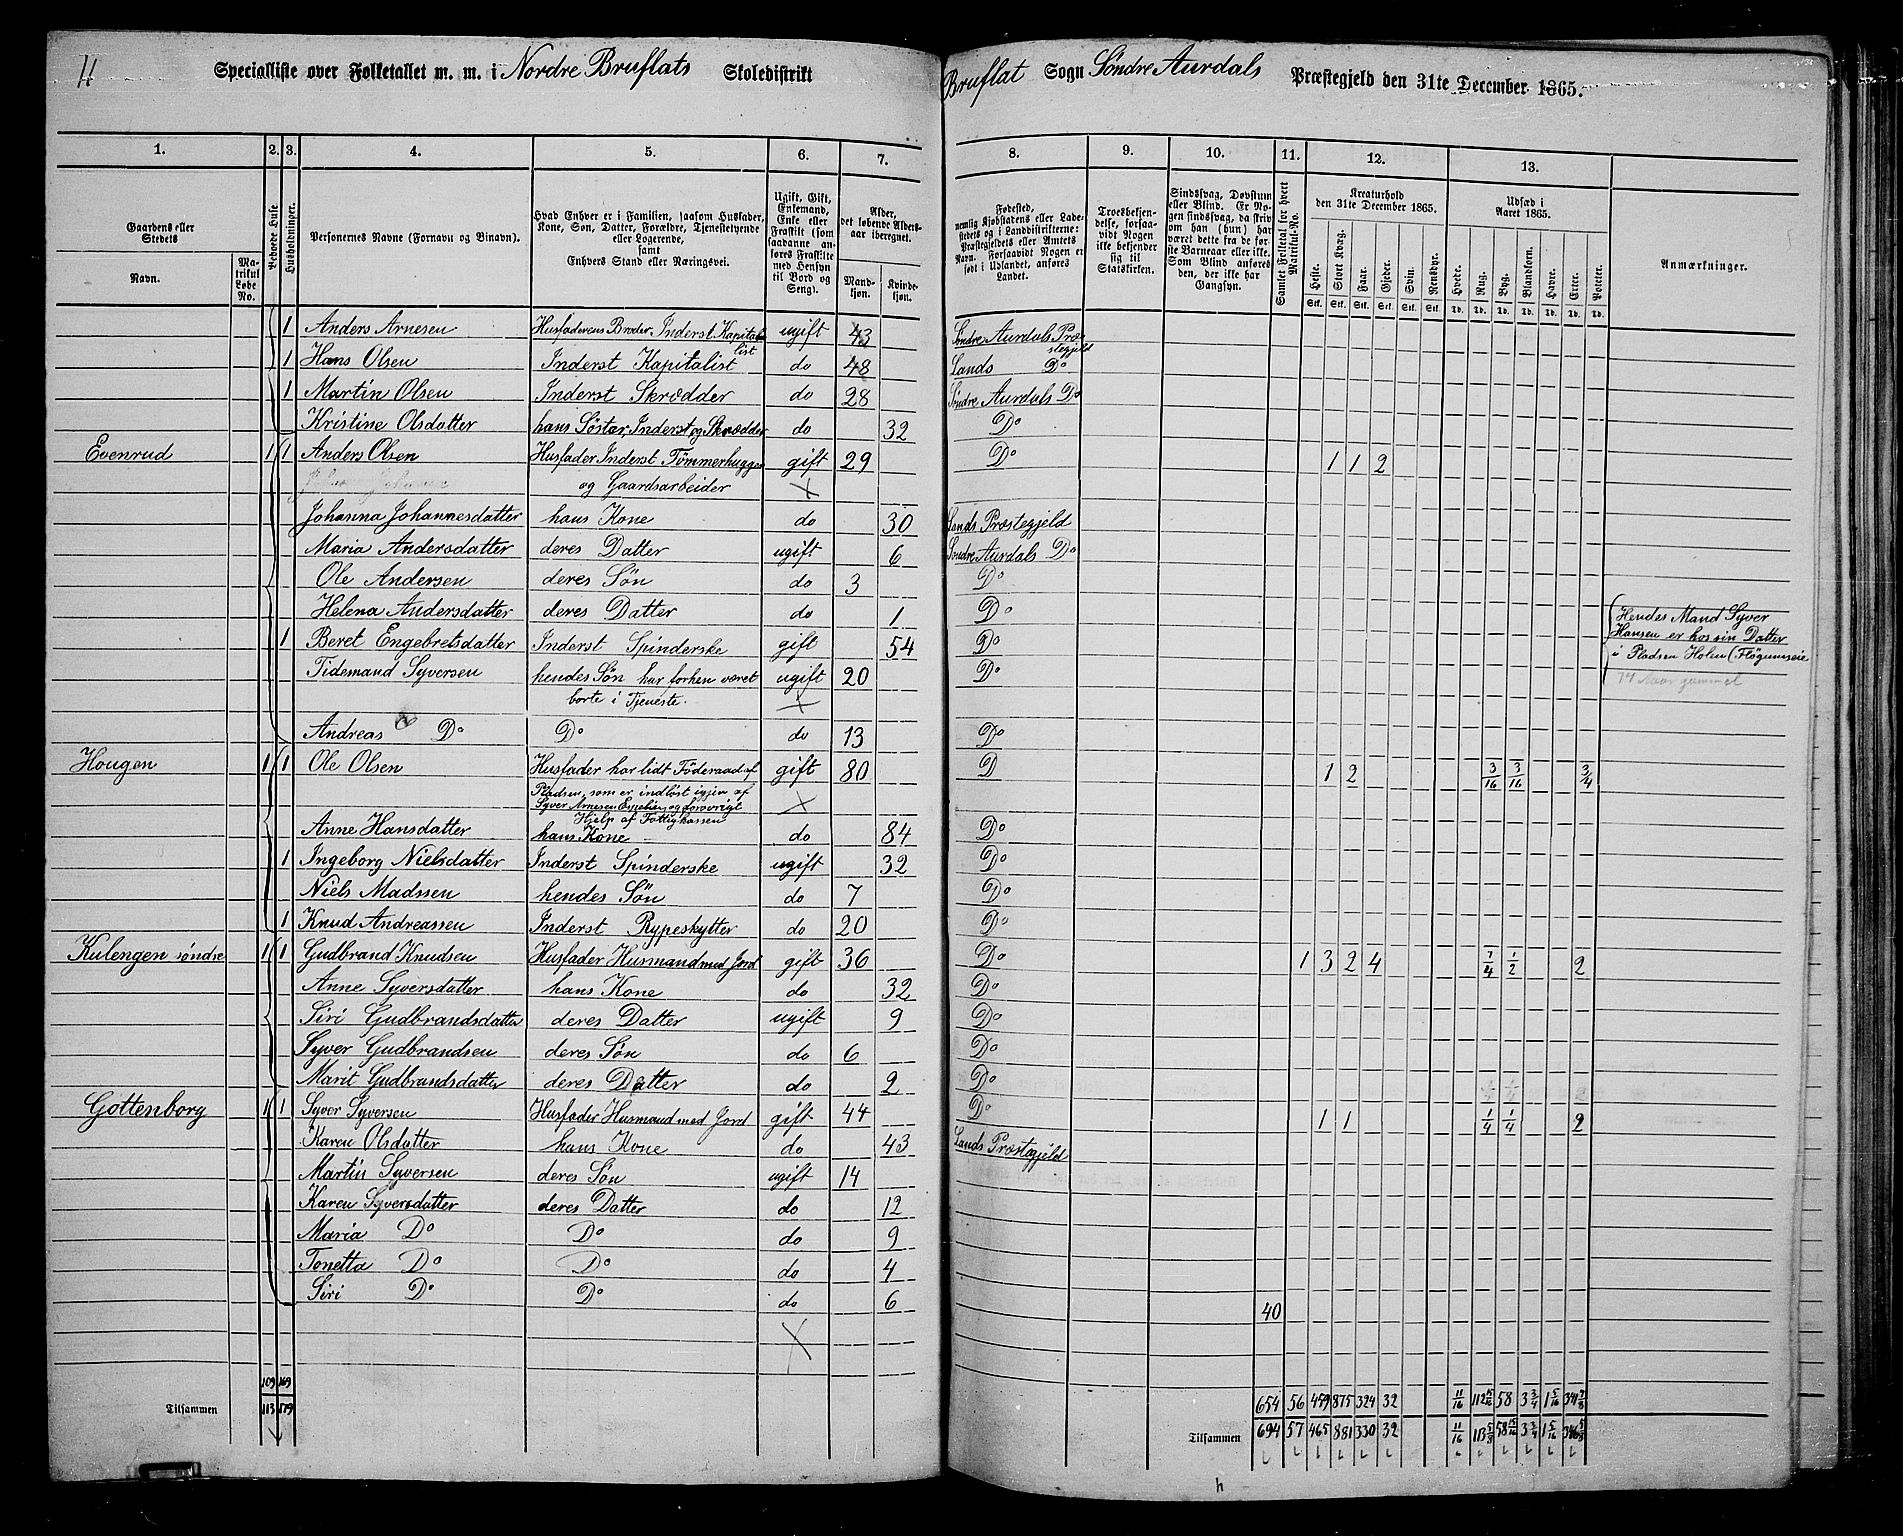 11
Specialliste over Folketallet m. m. i Nordre Bruflats Skoledistrikt
Bruflat Sogn Søndre Aurdals Præstegjeld den 31te December 1865.
1. 2. 3. 4. 5. 6. 7. 8. 9. 10. 11. 12. 13.
Gaardens eller Stedets
Navn.
Matrikul Løbe No.
Beboede Huse.
Husholdninger.
Personernes Navne (Fornavn og Binavn).
Hvad Enhver er i Familien, saasom Husfader,
Kone, Søn, Datter, Forældre, Tjenestetyende
eller Logerende,
samt
Enhvers Stand eller Næringsvei.
Ugift, Gift,
Enkemand,
Enke eller
Fraskilt (som
saadanne anføres
Fraskilte
med Hensyn
til Bord og
Seng).
Alder,
det løbende Alders-
aar iberegnet.
Mandkjøn.
Kvindekjøn.
Fødested,
nemlig Kjøbstadens eller Ladestedets
og i Landdistrikterne:
Præstegjeldets eller Amtets
Navn. Forsaavidt Nogen er
født i Udlandet, anføres
Landet.
Troesbekjendelse,
forsaavidt
Nogen
ikke bekjender
sig til
Statskirken.
Sindssvag, Døvstum
eller Blind. Er Nogen
sindssvag, da skriv
om han (hun) har
været dette fra de første
Barneaar eller ikke.
Som Blind anføres
den, der ikke har
Gangsyn.
Samlet Folketal for hvert Matrikul-No.
Kreaturhold
den 31te December 1865.
Heste. Stort Kvæg. Faar. Gjeder. Svin. Rensdyr.
Stk. Stk. Stk. Stk. Stk. Stk.
Udsæd i
Aaret 1865.
Hvede. Rug. Byg. Blandkorn. Havre. Erter. Poteter.
Td. Td. Td. Td. Td. Td. Td.
Anmærkninger.
1 Anders Arnesen Husfaderens Broder, Inderst Kapitalist ugift 43 Søndre Aurdals Præstegjeld
1 Hans Olsen Inderst Kapitalist do 48 Lands Do
1 Martin Olsen Inderst Skrædder do 28 Søndre Aurdals Do
Kristine Olsdatter hans Søster, Inderst og Skrædder do 32 Do
Evenrud 1 1 Anders Olsen Husfader Inderst Tømmerhugger gift 29 Do 1 1 2
og Gaardsarbeider
Johanna Johannesdatter hans Kone do 30 Lands Præstegjeld
Maria Andersdatter deres Datter ugift 6 Søndre Aurdals Do
Ole Andersen deres Søn do 3 Do
Helena Andersdatter deres Datter do 1 Do
1 Beret Engebretsdatter Inderst Spinderske gift 54 Do
Hendes Mand Syver
Hansen er hos sin Datter
i Pladsen Holen (Fløgumseie
74 Aar gammel
Tidemand Syversen hendes Søn har forhen været ugift 20 Do
borte i Tjeneste.
Andreas Do Do do 13 Do
Hougen 1 1 Ole Olsen Husfader har lidt Føderaad af gift 80 D 1 2 3/16 3/16 3/4
Pladsen, som er indløst igjen af
Syver Arnesen og forøvrigt
Hjelp af Fattigkassen
Anne Hansdatter hans Kone do 84 Do
1 Ingeborg Nielsdatter Inderst Spinderske ugift 32 Do
Niels Madssen hendes Søn do 7 Do
1 Knud Andreassen Inderst Rypeskytter do 20 Do
Kulengen søndre 1 1 Gudbrand Knudsen Husfader Husmand med Jord gift 36 Do 1 3 2 4 1/4 1/2 2
Anne Syversdatter hans Kone do 32 Do
Siri Gudbrandsdatter deres Datter ugift 9 Do
Syver Gudbrandsen deres Søn do 6 Do
Marit Gudbrandsdatter deres Datter do 2 Do
Gottenborg 1 1 Syver Syversen Husfader Husmand med Jord gift 44 Do 1 1 1/4 1/4 2
Karen Olsdatter hans Kone do 43 Lands Præstegjeld
Martin Syversen deres Søn ugift 14
Karen Syversdatter deres Datter do 12
Maria Do Do do 9
Tonetta Do Do do 4
Siri Do Do do 6
40
109 169
654 56 459 875 324 32 11/16 112 15/16 58 3 3/4 1 5/16 341 7/8
Tilsammen 113 179
Tilsammen 694 57 465 881 330 32 11/16 113 5/8 58 15/16 3 3/4 1 5/16 346 5/8